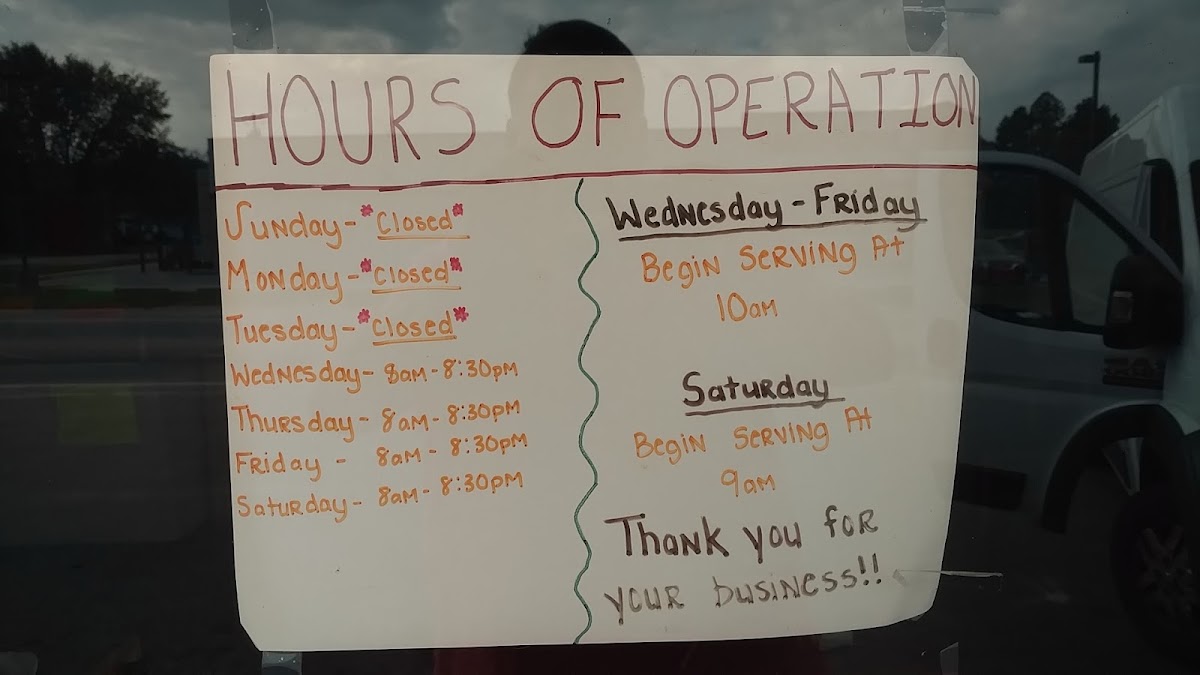 HOURS OF OPERATION
Sunday-*Closed*
Monday-*Closed*
Tuesday-*Closed*
Wednesday- 8am-8:30pm
Thursday- 8am-8:30pm
Friday - 8am- 8:30pm
Saturday- 8am- 8:30pm
Wednesday-Friday
Begin Serving At
10am
Saturday
Begin Serving At
9am
Thank you for
your business!!